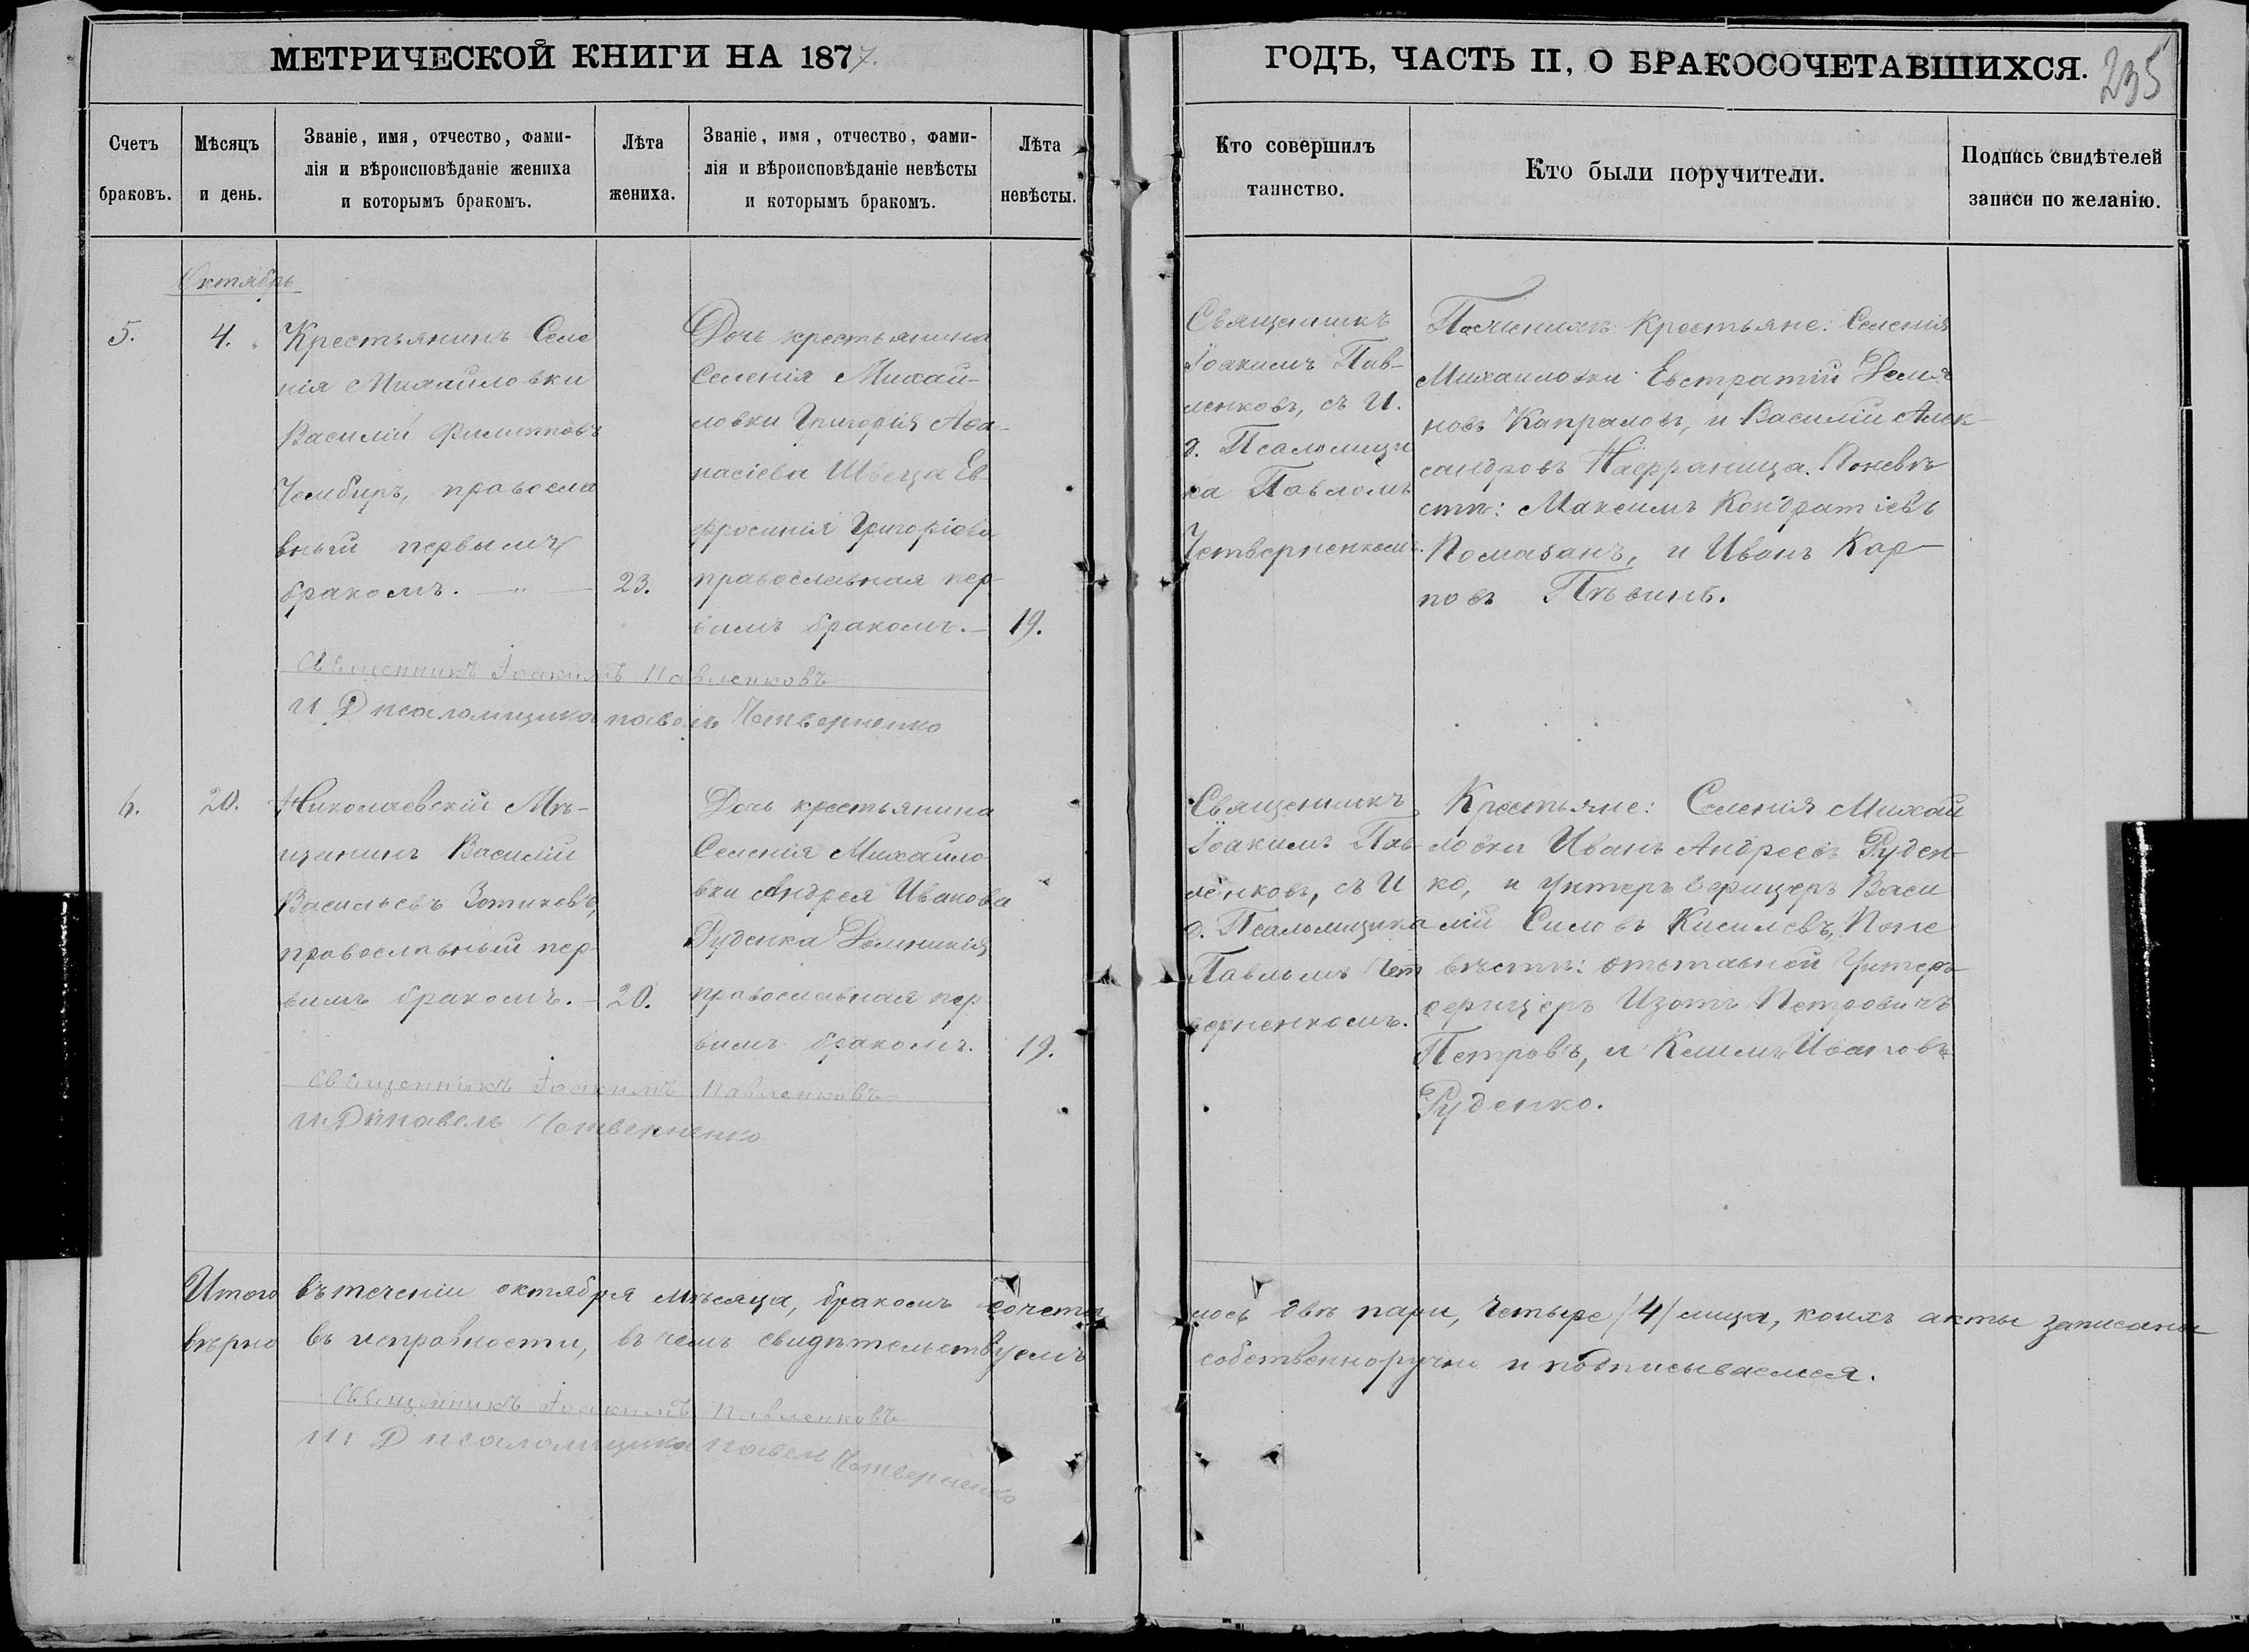 МЕТРИЧЕСКОЙ КНИГИ НА 1877.
ГОДЪ, ЧАСТЬ II, О БРАКОСОЧЕТАВШИХСЯ.
235
Счетъ
браковъ.
Мѣсяцъ
и день.
Званіе, имя, отчество, фами-
лія и вѣроисповѣданіе жениха
и которымъ бракомъ.
Лѣта
жениха.
Званіе, имя, отчество, фами-
лія и вѣроисповѣданіе невѣсты
и которымъ бракомъ.
Лѣта
невѣсты.
Кто совершилъ
таинство.
Кто были поручители.
Подпись свидѣтелей
записи по желанію.
Октябрь
5.
4.
Крестьянинъ Селе
нія Михайловки
Василій Филипповъ
Чембиръ, правосла
вный первымъ
бракомъ. — „ —
23.
Дочь крестьянина
Селенія Михай-
ловки Григорія Аѳа-
насіева Швеца Ев-
фросинія Григоріева
православная пер-
вимъ бракомъ. —
19.
Священникъ
Іоакимъ Пав-
ленковъ, съ И.
д. Псаломщи
ка Павломъ
Четверненкомъ.
По женихѣ Крестьяне: Селенія
Михайловки Евстратій Демя
новъ Капраловъ, и Василій Алек-
сандровъ Нафраница. Поневѣ
стѣ: Максимъ Кондратіевъ
Помазанъ, и Иванъ Кар-
повъ Пѣвинъ.
Священникъ Іоакимъ Павленковъ
И Д псаломщика павелъ Четверненко
6.
20.
Николаевскій Мѣ-
щанинъ Василій
Васильевъ Зотиковъ,
православный пер-
вимъ бракомъ. —
20.
Дочь крестьянина
Селенія Михайло
вки Андрея Иванова
Руденка Домникія
православная пер
вимъ бракомъ.
19.
Священникъ
Іоакимъ Пав-
ленковъ, съ И
д. Псаломщика
Павломъ Чет
верненкомъ.
Крестьяне: Селенія Михай
ловки Иванъ Андреевъ Руден-
ко, и Унтеръ Оѳицеръ Васи
лій Силовъ Киселевъ, Поне
вѣстѣ: отставной Унтеръ-
оѳицеръ Изотъ Петровичъ
Петровъ, и Климъ Ивановъ
Руденко.
Священникъ Іоакимъ Павленковъ
И. Д павелъ Четверненко
Итого въ теченіи октября мѣсяца, бракомъ сочета
лось двѣ пари, четыре /4/ лица, коихъ акты записаны
вѣрно въ исправности, въ чемъ свидѣтельствуемъ
собственноручно и подписываемся.
Священникъ Іоакимъ Павленковъ
И. Д псаломщика павел Четверненко